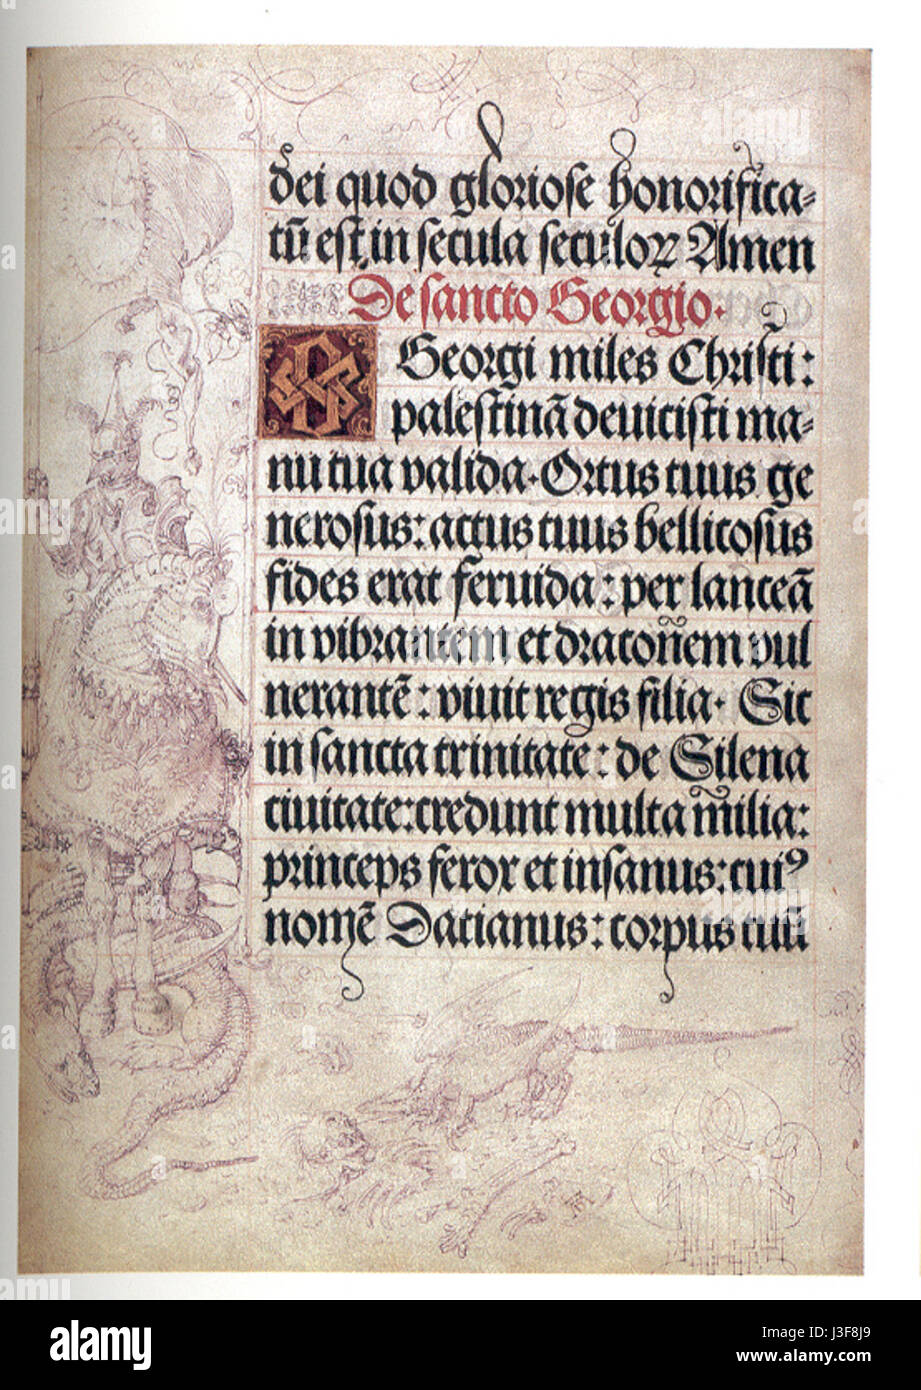 dei quod gloriose honorifica=
tū est, in secula seculoꝝ Amen
De sancto Georgio.
O Georgi miles Christi:
palestinā deuicisti ma=
nu tua valida. Ortus tuus ge
nerosus: actus tuus bellicosus
fides erat feruida: per lanceā
in vibrantem et draconem vul
nerantē: viuit regis filia. Sic
in sancta trinitate: de Silena
ciuitate: credunt multa milia:
princeps ferox et insanus: cuiꝰ
nomē Dacianus: corpus tuū
alamy
Image ID: J3F8J9
www.alamy.com